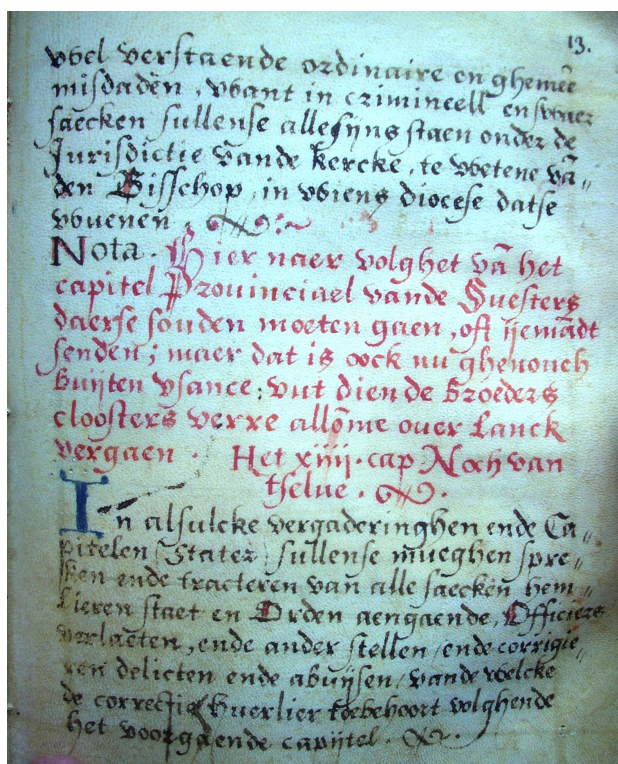 13.
wel verstaende ordinaire en ghemeē
misdadē, want in crimineelle en swaer
saecken sullense allesijns staen onder de
Jurisdictie vande kercke, te wetene vā,,
den Bisschop, in wiens diocese datse
wuenen.
Nota. Hier naer volghet vā het
capitel Prouinciael vande Suesters
daerse souden moeten gaen, oft ijemādt
senden; maer dat is oock nu ghenouch
buijten vsance; vut dien de broeders
cloosters verre allōme ouer lanck
vergaen. Het xiiij. cap Noch van
tselue.
In alsulcke vergaderinghen ende Ca,,
pitelen (Stater) sullense mueghen spre,,
ken ende tracteren van alle saecken hem,,
lieren staet en Orden aengaende, Officiers
verlaeten, ende ander stellen, ende corrigie,,
ren delicten ende abuijsen, vande welcke
de correctie huerlier toebehoort volghende
het voorgaende capijtel.